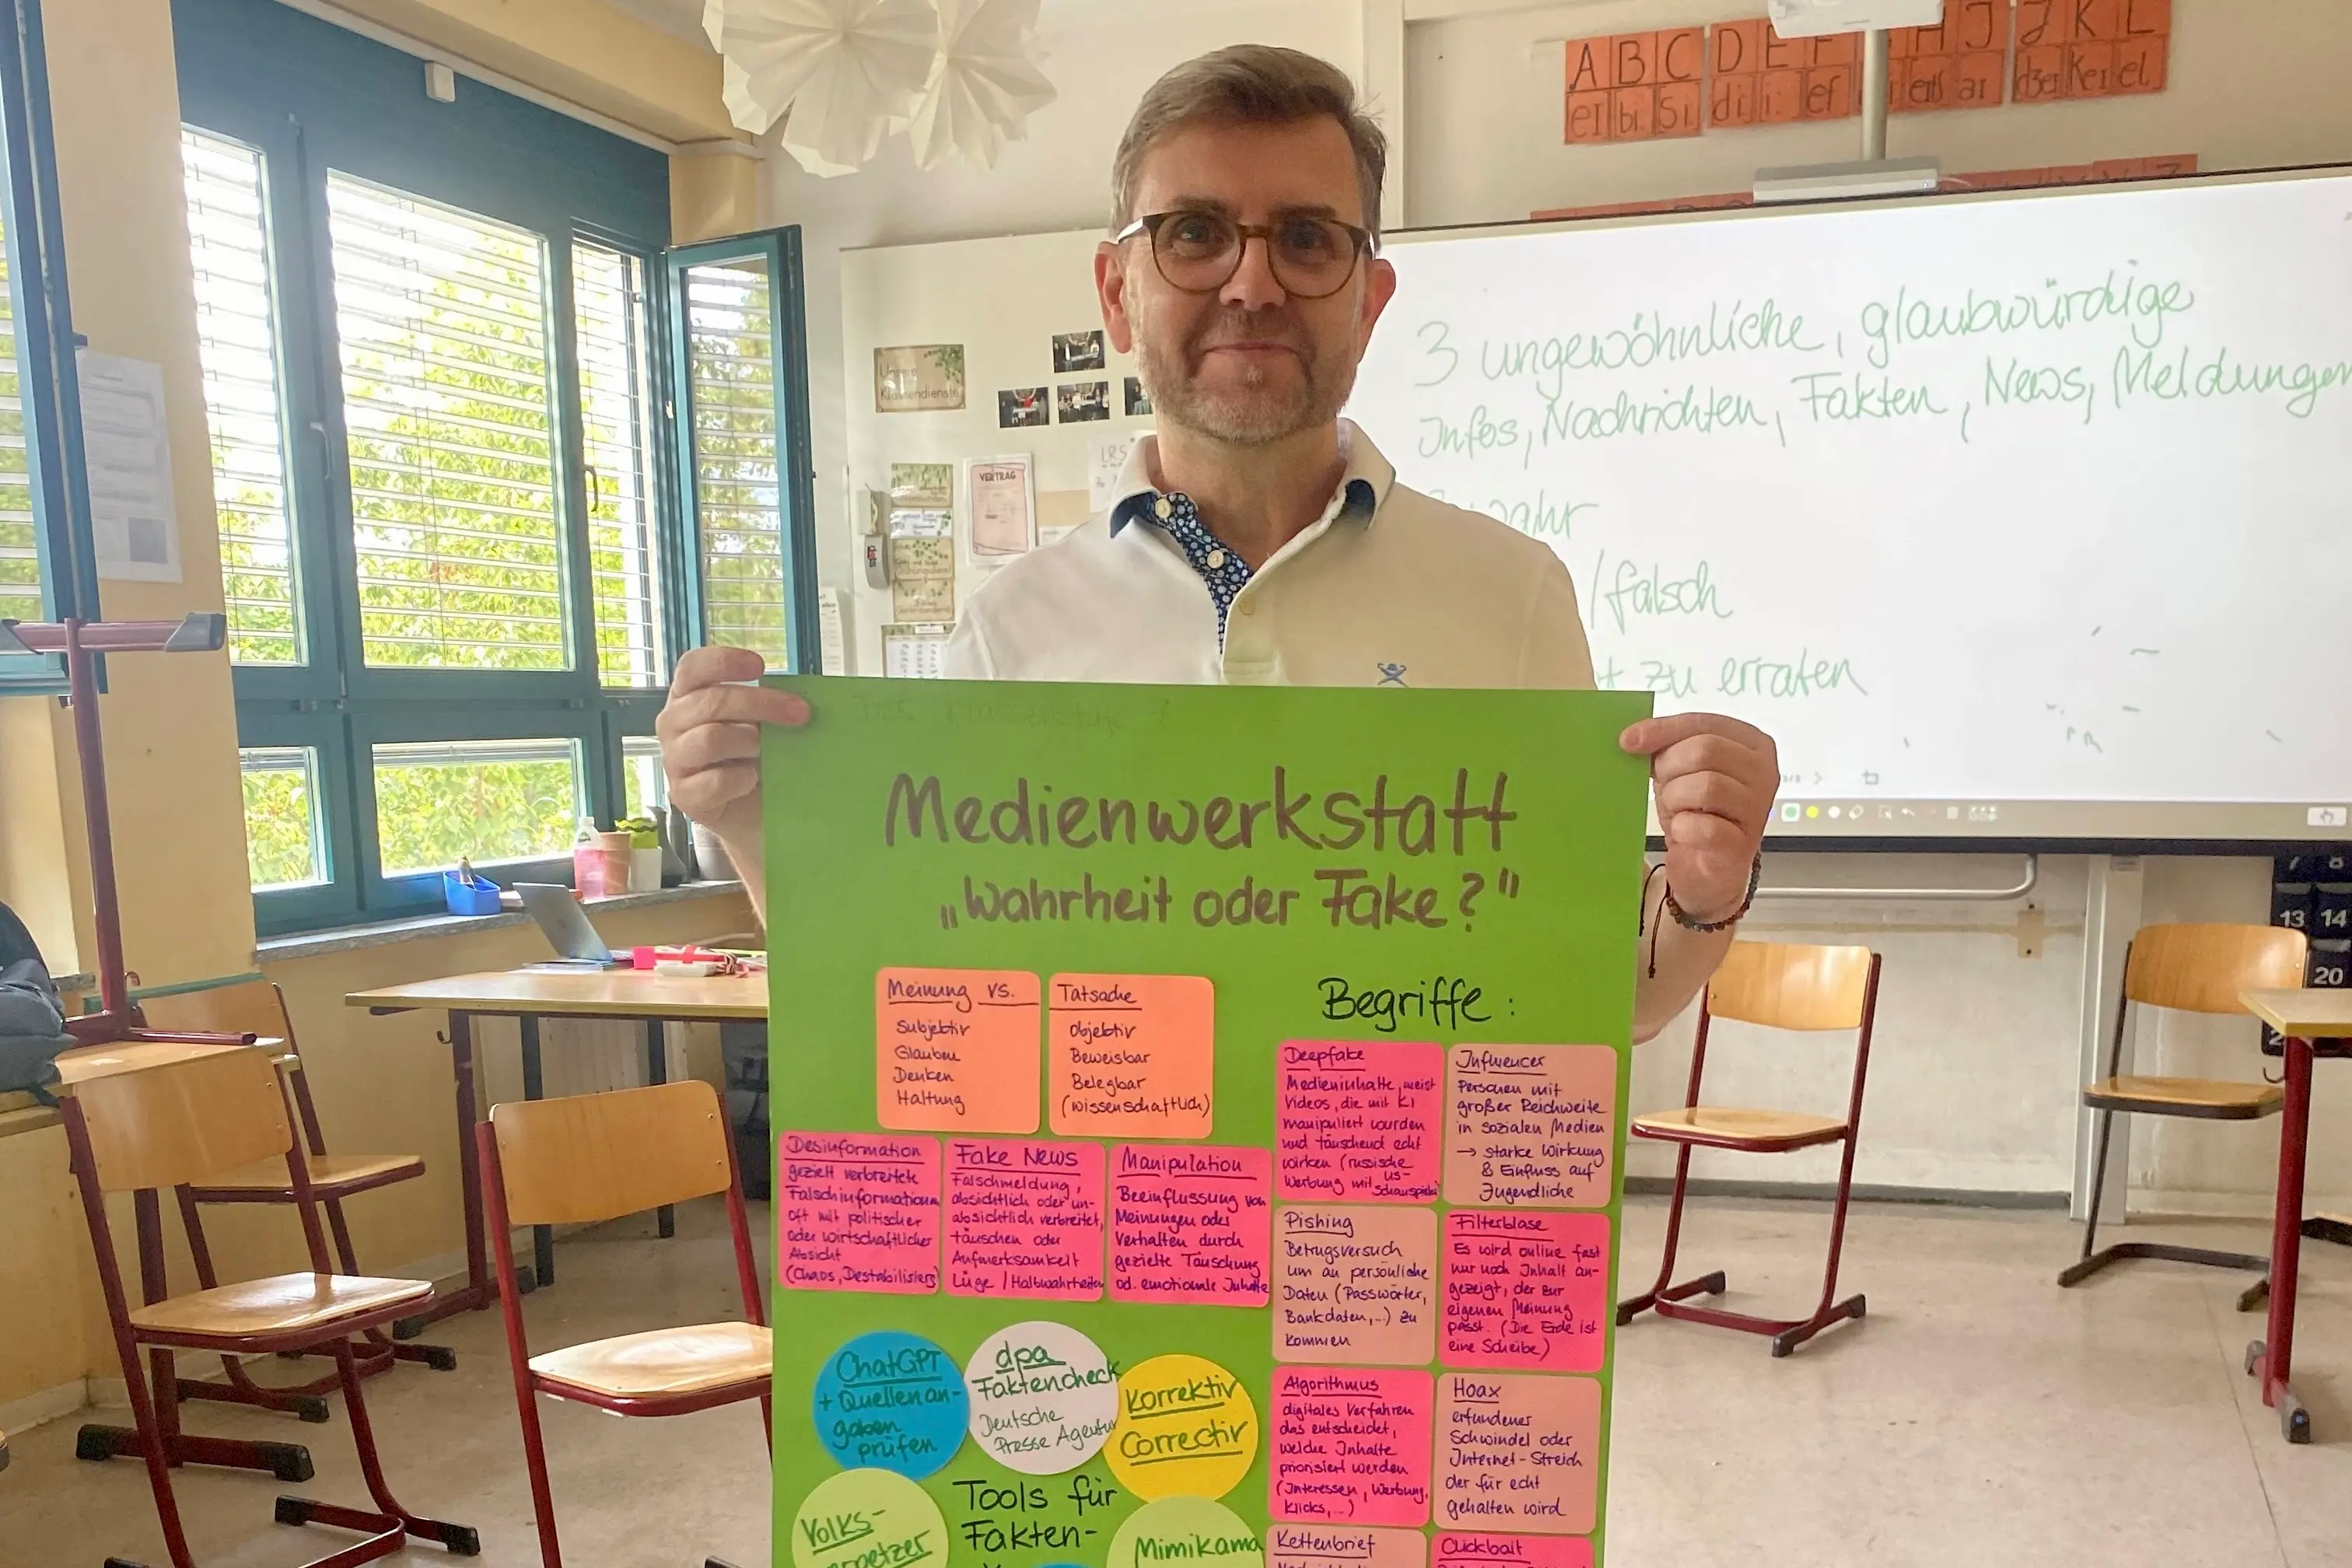 A B C D E F H I J K L
ei bi: Si: di: i: ef ar dʒei kei el
Unsere
Klassendienste
VERTRAG
LRS
3 ungewöhnliche, glaubwürdige
Infos, Nachrichten, Fakten, News, Meldungen
wahr
/falsch
zu erraten
7 8
13 14
20
Medienwerkstatt
„Wahrheit oder Fake?"
Meinung vs.
Subjektiv
Glauben
Denken
Haltung
Tatsache
Objektiv
Beweisbar
Belegbar
(wissenschaftlich)
Begriffe :
Deepfake
Medieninhalte, meist
Videos, die mit KI
manipuliert wurden
und täuschend echt
wirken (russische
US-
Werbung mit Schauspieler
Influencer
Personen mit
großer Reichweite
in sozialen Medien
→ starke Wirkung
& Einfluss auf
Jugendliche
Desinformation
gezielt verbreitete
Falschinformationen
oft mit politischer
oder wirtschaftlicher
Absicht
(Chaos, Destabilisierg)
Fake News
Falschmeldung,
absichtlich oder un-
absichtlich verbreitet,
täuschen oder
Aufmerksamkeit
Lüge / Halbwahrheiten
Manipulation
Beeinflussung von
Meinungen oder
Verhalten durch
gezielte Täuschung
od. emotionale Inhalte
Pishing
Betrugsversuch
um an persönliche
Daten (Passwörter,
Bankdaten,..) zu
kommen
Filterblase
Es wird online fast
nur noch Inhalt an-
gezeigt, der zur
eigenen Meinung
passt. (Die Erde ist
eine Scheibe)
ChatGPT
+ Quellenan-
gaben
prüfen
dpa
Faktencheck
Deutsche
Presse Agentur
Korrektiv
Correctiv
Algorithmus
digitales Verfahren
das entscheidet,
welche Inhalte
priorisiert werden
(Interessen, Werbung,
Klicks,..)
Hoax
erfundener
Schwindel oder
Internet-Streich
der für echt
gehalten wird
Volks-
verpetzer
Tools für
Fakten-
Mimikama
Kettenbrief
Clickbait